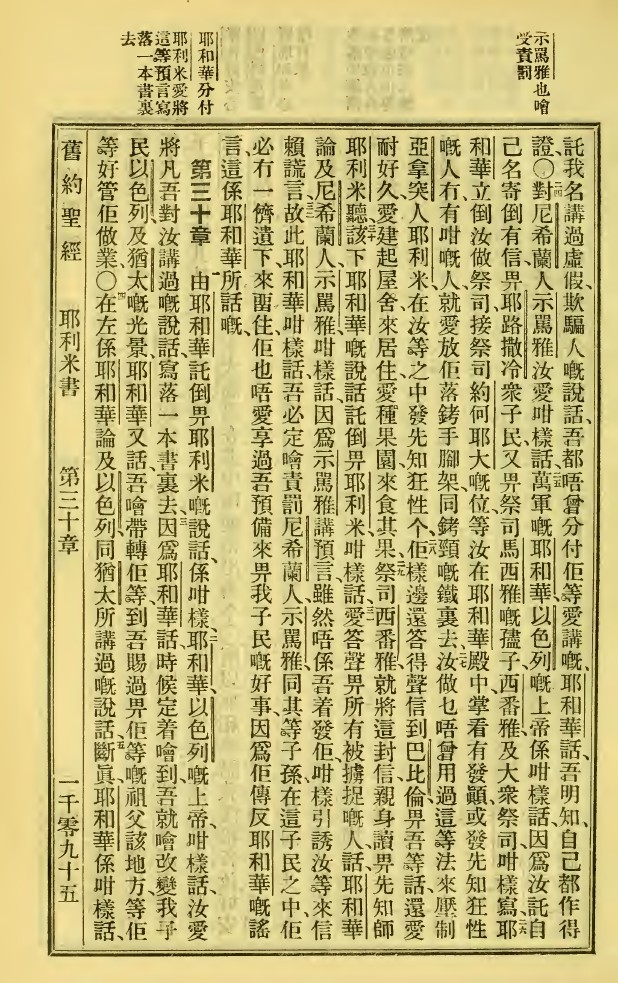 示罵雅也噲
受責罰
耶和華分付
耶利米愛將
這等預言寫
落一本書裏
去
託我名講過虛假欺騙人嘅說話、吾都唔曾分付佢等愛講嘅、耶和華話、吾明知自己都作得
證、○二四對尼希蘭人示罵雅汝愛咁樣話、二五萬軍嘅耶和華以色列嘅上帝係咁樣話、因爲汝託自
己名寄倒有信畀耶路撒冷衆子民、又畀祭司馬西雅嘅孻子西番雅及大衆祭司咁樣寫、二六耶
和華立倒汝做祭司、接祭司約何耶大嘅位、等汝在耶和華殿中掌看有發顚或發先知狂性
嘅人、冇有咁嘅人、就愛放佢落銬手腳架同銬頸嘅鐵裏去、二七汝做乜唔曾用過這等法來壓制
亞拿突人耶利米、在汝等之中發先知狂性个、二八佢樣邊還答得聲信到巴比倫畀吾等話、還愛
耐好久、愛建起屋舍來居住、愛種果園來食其果、二九祭司西番雅就將這封信親身讀畀先知師
耶利米聽、三十該下耶和華嘅說話託倒畀耶利米咁樣話、三一愛答聲畀所有被擄捉嘅人話、耶和華
論及尼希蘭人示罵雅咁樣話、因爲示罵雅講預言、雖然唔係吾着發佢、咁樣引誘汝等來信
賴謊言、三二故此耶和華咁樣話、吾必定噲責罰尼希蘭人示罵雅、同其等子孫、在這子民之中、佢
必冇一儕遺下來畱住、佢也唔愛享過吾預備來畀我子民嘅好事、因爲佢傳反耶和華嘅謠
言、這係耶和華所話嘅、
第三十章 一由耶和華託倒畀耶利米嘅說話、係咁樣、二耶和華以色列嘅上帝咁樣話、汝愛
將凡吾對汝講過嘅說話、寫落一本書裏去、三因爲耶和華話、時候定着噲到、吾就噲改變我子
民以色列、及猶太嘅光景、耶和華又話、吾噲帶轉佢等、到吾賜過畀佢等嘅祖父該地方、等佢
等好管佢做業、○四在左係耶和華論及以色列同猶太所講過嘅說話、五斷眞、耶和華係咁樣話、
舊約聖經 耶利米書 第三十章 一千零九十五